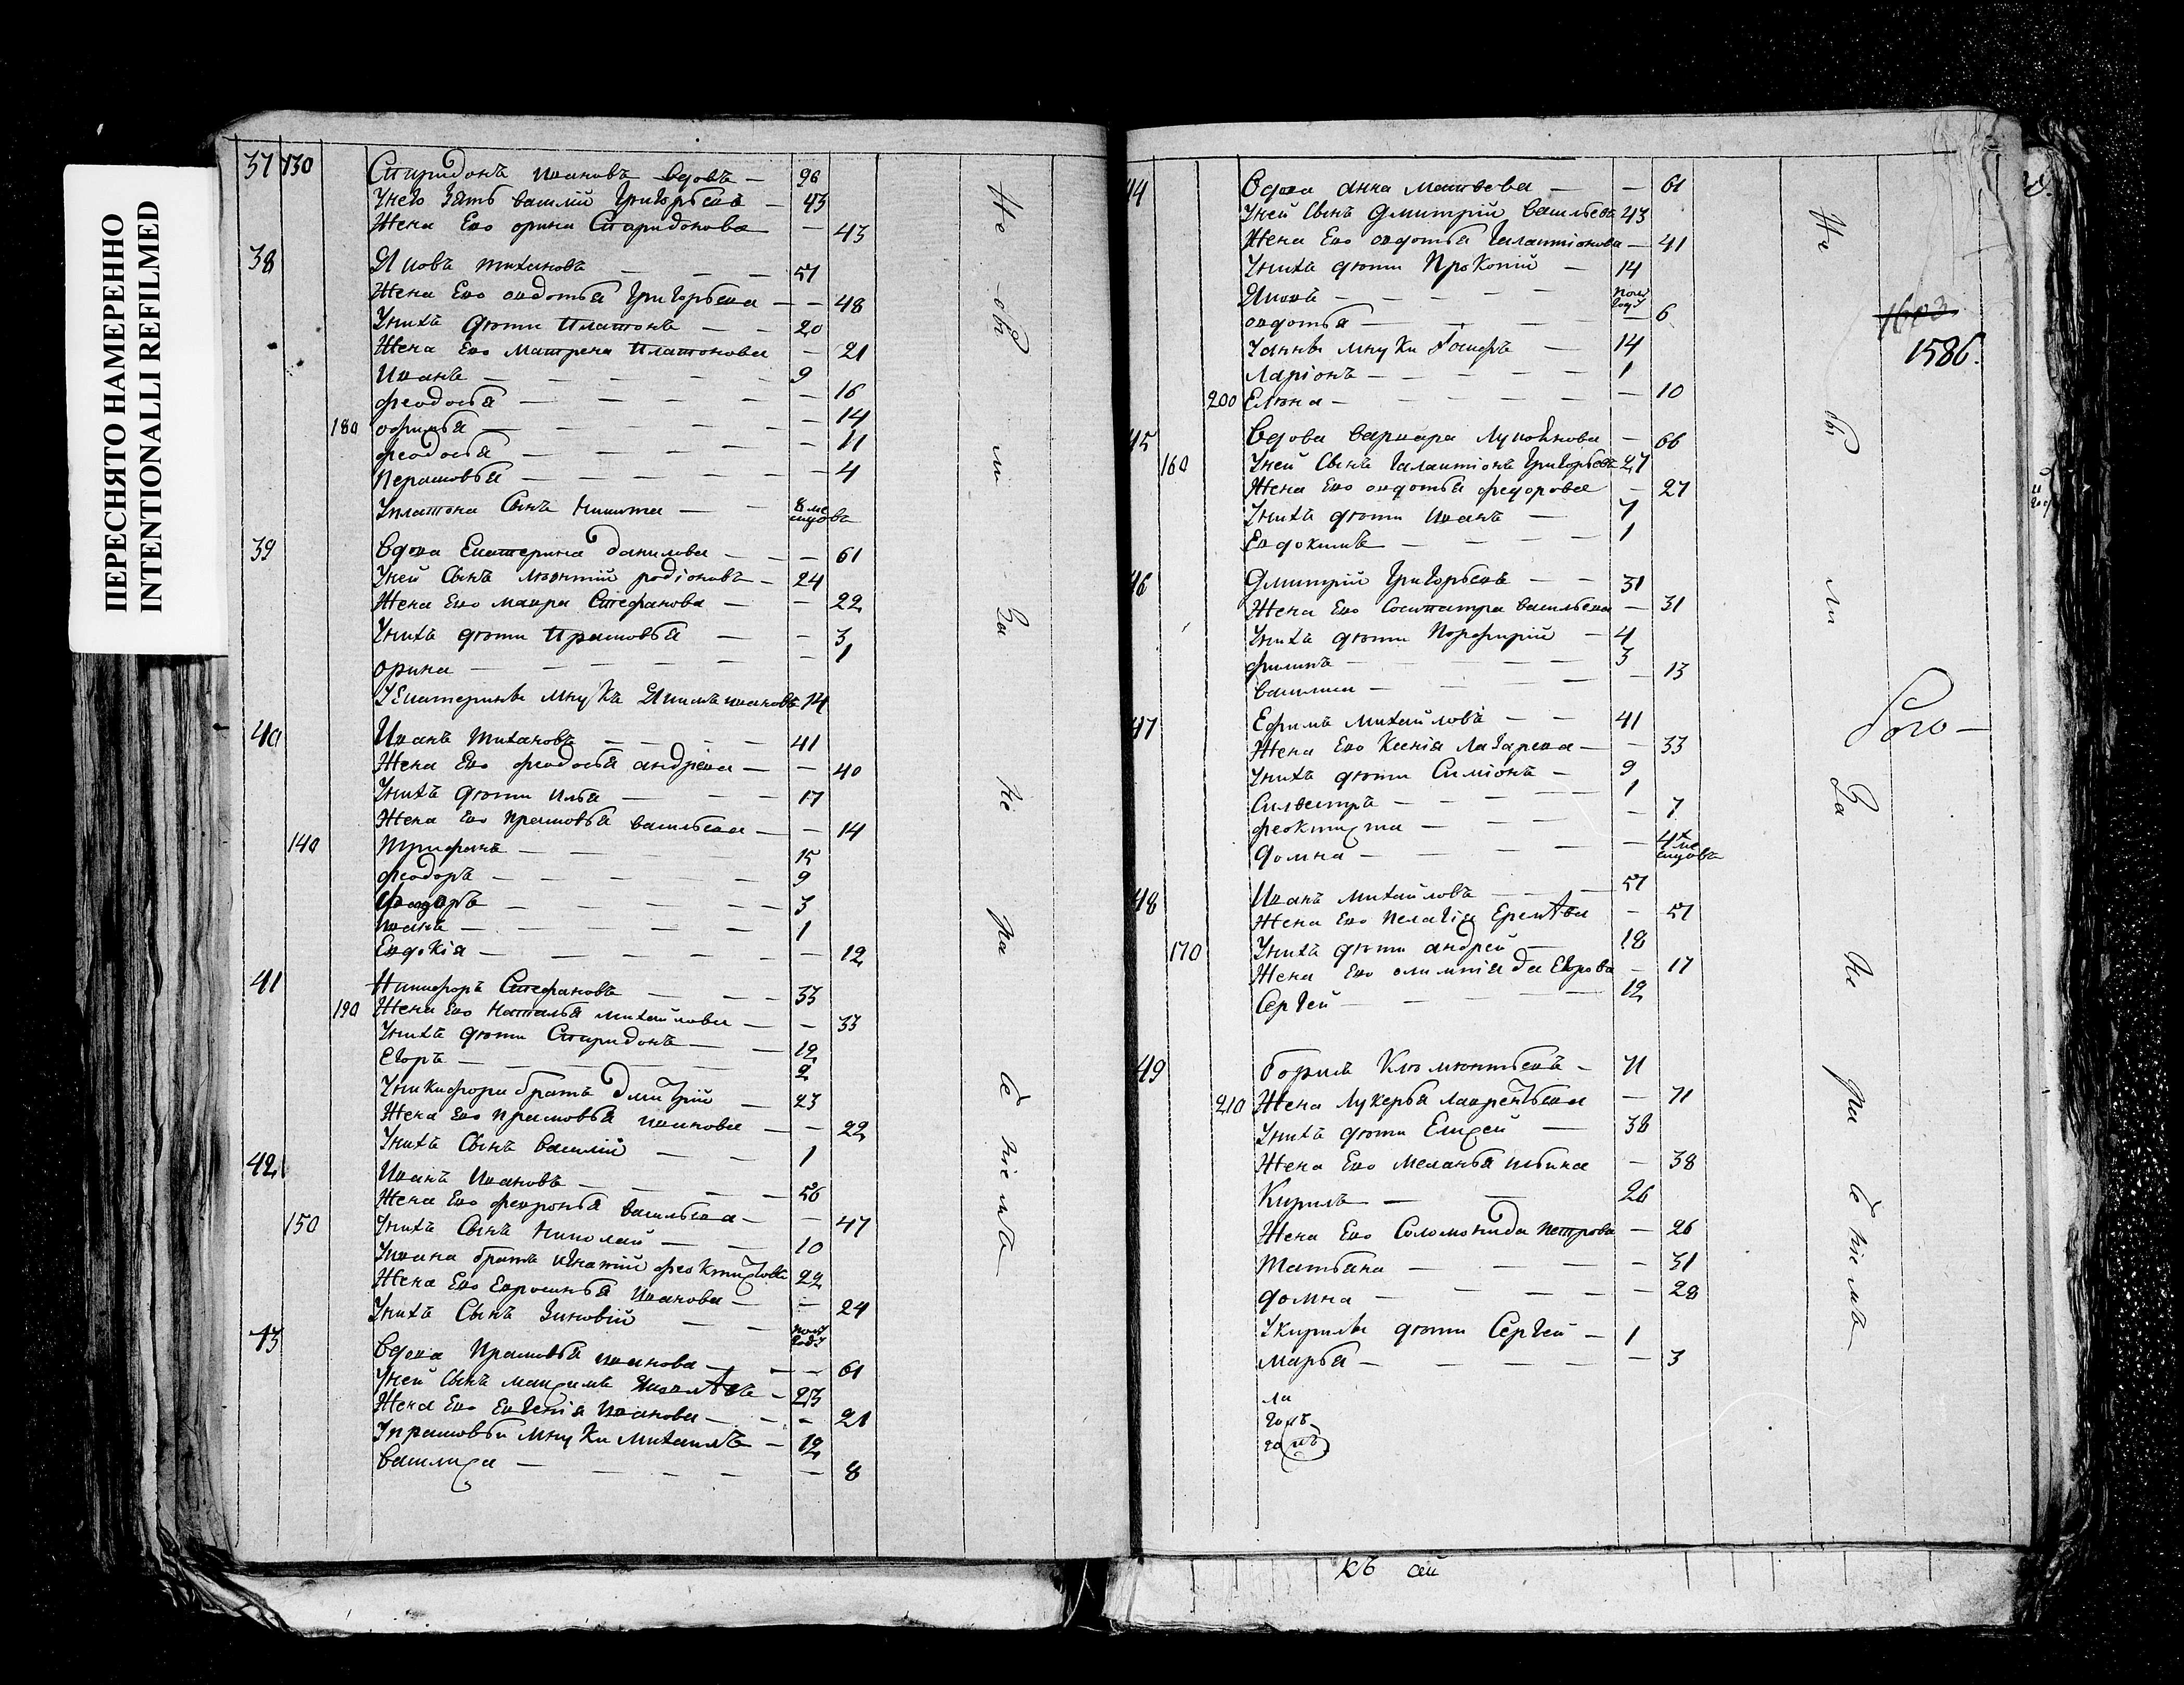 ПЕРЕСНЯТО НАМЕРЕННО
INTENTIONALLI REFILMED
37 130 Спиридонъ Ивановъ вдовъ — 96
Унего Зять василій Григорьевъ — 43
Жена Ево орина Спиридонова — 43
38 Яковъ тихановъ — — — 51
Жена Ево овдотья Григорьева — — 48
Унихъ дѣти Платонъ — — 20
Жена Ево матрена Платонова — 21
Иванъ — — — — — 9
феодосья — — — — — 16
180 офимья — — — — — 14
феодосья — — — — — 11
Перасковья — — — — — 4
Уплатона Сынъ Никита — — 8 ме сицовъ
39 Вдова Екатерина данилова — — — 61
Уней Сынъ лѣонтій родіоновъ — 24
Жена Ево мавра Стефанова — — 22
Унихъ дѣти Прасковья — — 3
орина — — — — — 1
УЕкатерины мнукъ Якимъ ивановъ 14
40 Иванъ тихановъ — — — — 41
Жена Ево феодосья андрѣева — — 40
Унихъ дѣти Илья — — — 17
Жена Ево Прасковья васильева — — 14
140 Трифанъ — — — — — 15
феодоръ — — — — — 9
Федоръ — — — — — 3
Иванъ — — — — — 1
Евдокія — — — — — — 12
41 Никифоръ Стефановъ — — — 33
190 Жена Ево Наталья михайлова — — 33
Унихъ дѣти Спиридонъ — — 12
Егоръ — — — — — 2
Уникифора братъ Дмитрій — 23
Жена Ево прасковья иванова — — 22
Унихъ Сынъ василій — — 1
42 Иванъ Ивановъ — — — — 56
Жена Ево февронья васильева — — 47
150 Унихъ Сынъ Николай — — 10
Уивана братъ игнатий феоктистовъ 22
Жена Ево Евросинья Иванова — — 24
Унихъ Сынъ Зиновій — — пол годъ
43 Вдова Прасковья иванова — — — 61
Уней Сынъ максимъ 23
Жена Ево Евгенія Иванова — — — 21
Упрасковьи мнуки михаилъ — 12
василиса — — — — — 8
Не объ ли За не ра Се ніемъ
44 Вдова анна матвеева — — 61
Уней Сынъ Дмитрій васильевъ 43
Жена Ево овдотья Галактіонова — 41
Унихъ дѣти Прокопій — 14
Яковъ — — — — — пол году
овдотья — — — — — 6
Уанны мнуки Іосифъ — 14
Ларіонъ — — — — — 1
200 Елѣна — — — — — 10
45 Вдова варвара — 66
160 Уней Сынъ Галактіонъ Григорьевъ 27
Жена Ево овдотья федорова — 27
Унихъ дѣти Иванъ — 7
Евдокимъ — — — — 1
46 Дмитрій Григорьевъ — — 31
Жена Ево Сосипатра васильева — 31
Унихъ дѣти Порфирій — 4
филипъ — — — — — 3
василиса — — — — 13
47 Ефимъ михайловъ — — 41
Жена Ево Ксенія Лазарева — — 33
Унихъ дѣти Симіонъ — 9
Силвестръ — — — — 1
феоктиста — — — — 7
домна — — — — — 4х ме сицовъ
48 Иванъ михайловъ — — — 51
Жена Ево Пелагія — 51
170 Унихъ дѣти андрей — 18
Жена Ево олимпіада Егорова — 17
Сергей — — — — — 12
49 борисъ — 71
210 Жена лукерья лаврентьева — 71
Унихъ дѣти Елисей — 38
Жена Ево меланья ильина — 38
Кирилъ — — 26
Жена Ево Соломонида петрова — 26
татьяна — — — — 31
домна — — — — — 28
Укирилы дѣти Сергей — 1
марья — — — — — 3
ли
1603
1586.
Рого —
Не объ ли За не ра Се ніемъ
къ сей